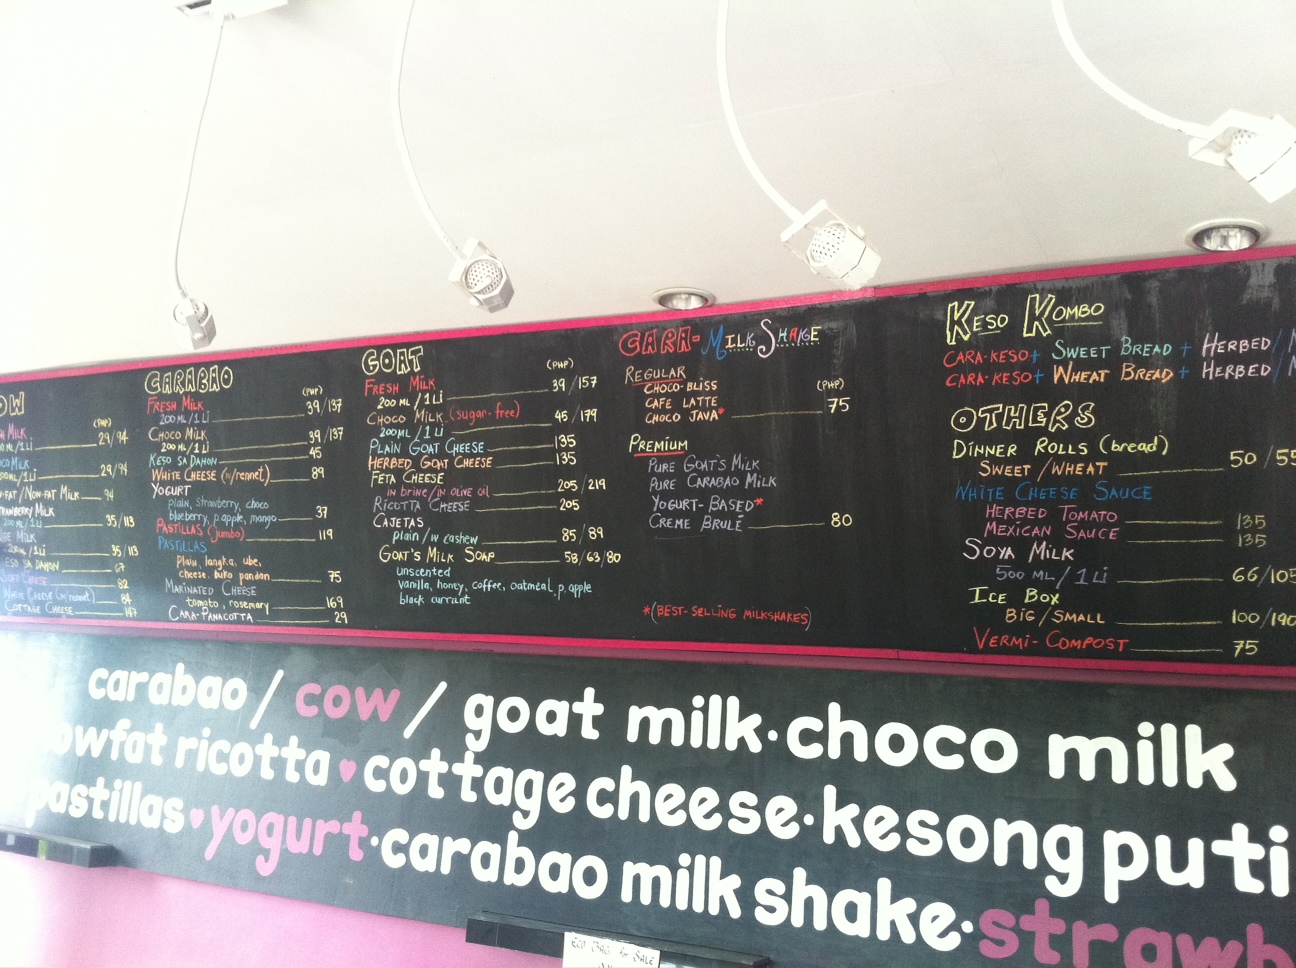 OW
(PHP)
Milk
29/94
29/94
-Fat/Non-Fat Milk 94
Strawberry Milk
200 ml/1 Li 35/113
Milk
35/113
Keso sa Dahon 67
Soft Cheese 82
White Cheese (w/rennet) 84
Cottage Cheese 147
CARABAO
(PHP)
Fresh Milk 39/137
200 ml/1 Li
Choco Milk 39/137
200 ml/1 Li
Keso sa Dahon 45
White Cheese (w/rennet) 89
Yogurt
plain, strawberry, choco
blueberry, p.apple, mango 37
Pastillas (jumbo) 119
Pastillas
plain, langka, ube,
cheese, buko pandan 75
Marinated Cheese
tomato, rosemary 169
Cara-Panacotta 29
GOAT
(PHP)
Fresh Milk 39/157
200 ml/1 Li
Choco Milk (sugar-free) 45/179
200ml/1 Li
Plain Goat Cheese 135
Herbed Goat Cheese 135
Feta Cheese
in brine/in olive oil 205/219
Ricotta Cheese 205
Cajetas
plain/w cashew 85/89
Goat's Milk Soap 58/63/80
unscented
vanilla, honey, coffee, oatmeal, p.apple
black currant
CARA-MILK SHAKE
Regular
(PHP)
Choco-Bliss
Cafe Latte
Choco Java* 75
Premium
Pure Goat's Milk
Pure Carabao Milk
Yogurt-Based*
Creme Brulé 80
*(Best-Selling Milkshakes)
Keso Kombo
Cara-Keso + Sweet Bread + Herbed/
Cara-Keso + Wheat Bread + Herbed/
OTHERS
Dinner Rolls (bread)
Sweet/Wheat 50/55
White Cheese Sauce
Herbed Tomato 135
Mexican Sauce 135
Soya Milk
500 ml/1 Li 66/105
Ice Box
Big/Small 100/190
Vermi-Compost 75
carabao / cow / goat milk · choco milk
owfat ricotta ♥ cottage cheese · kesong puti
pastillas ♥ yogurt · carabao milk shake · strawb
Eco Bag for Sale